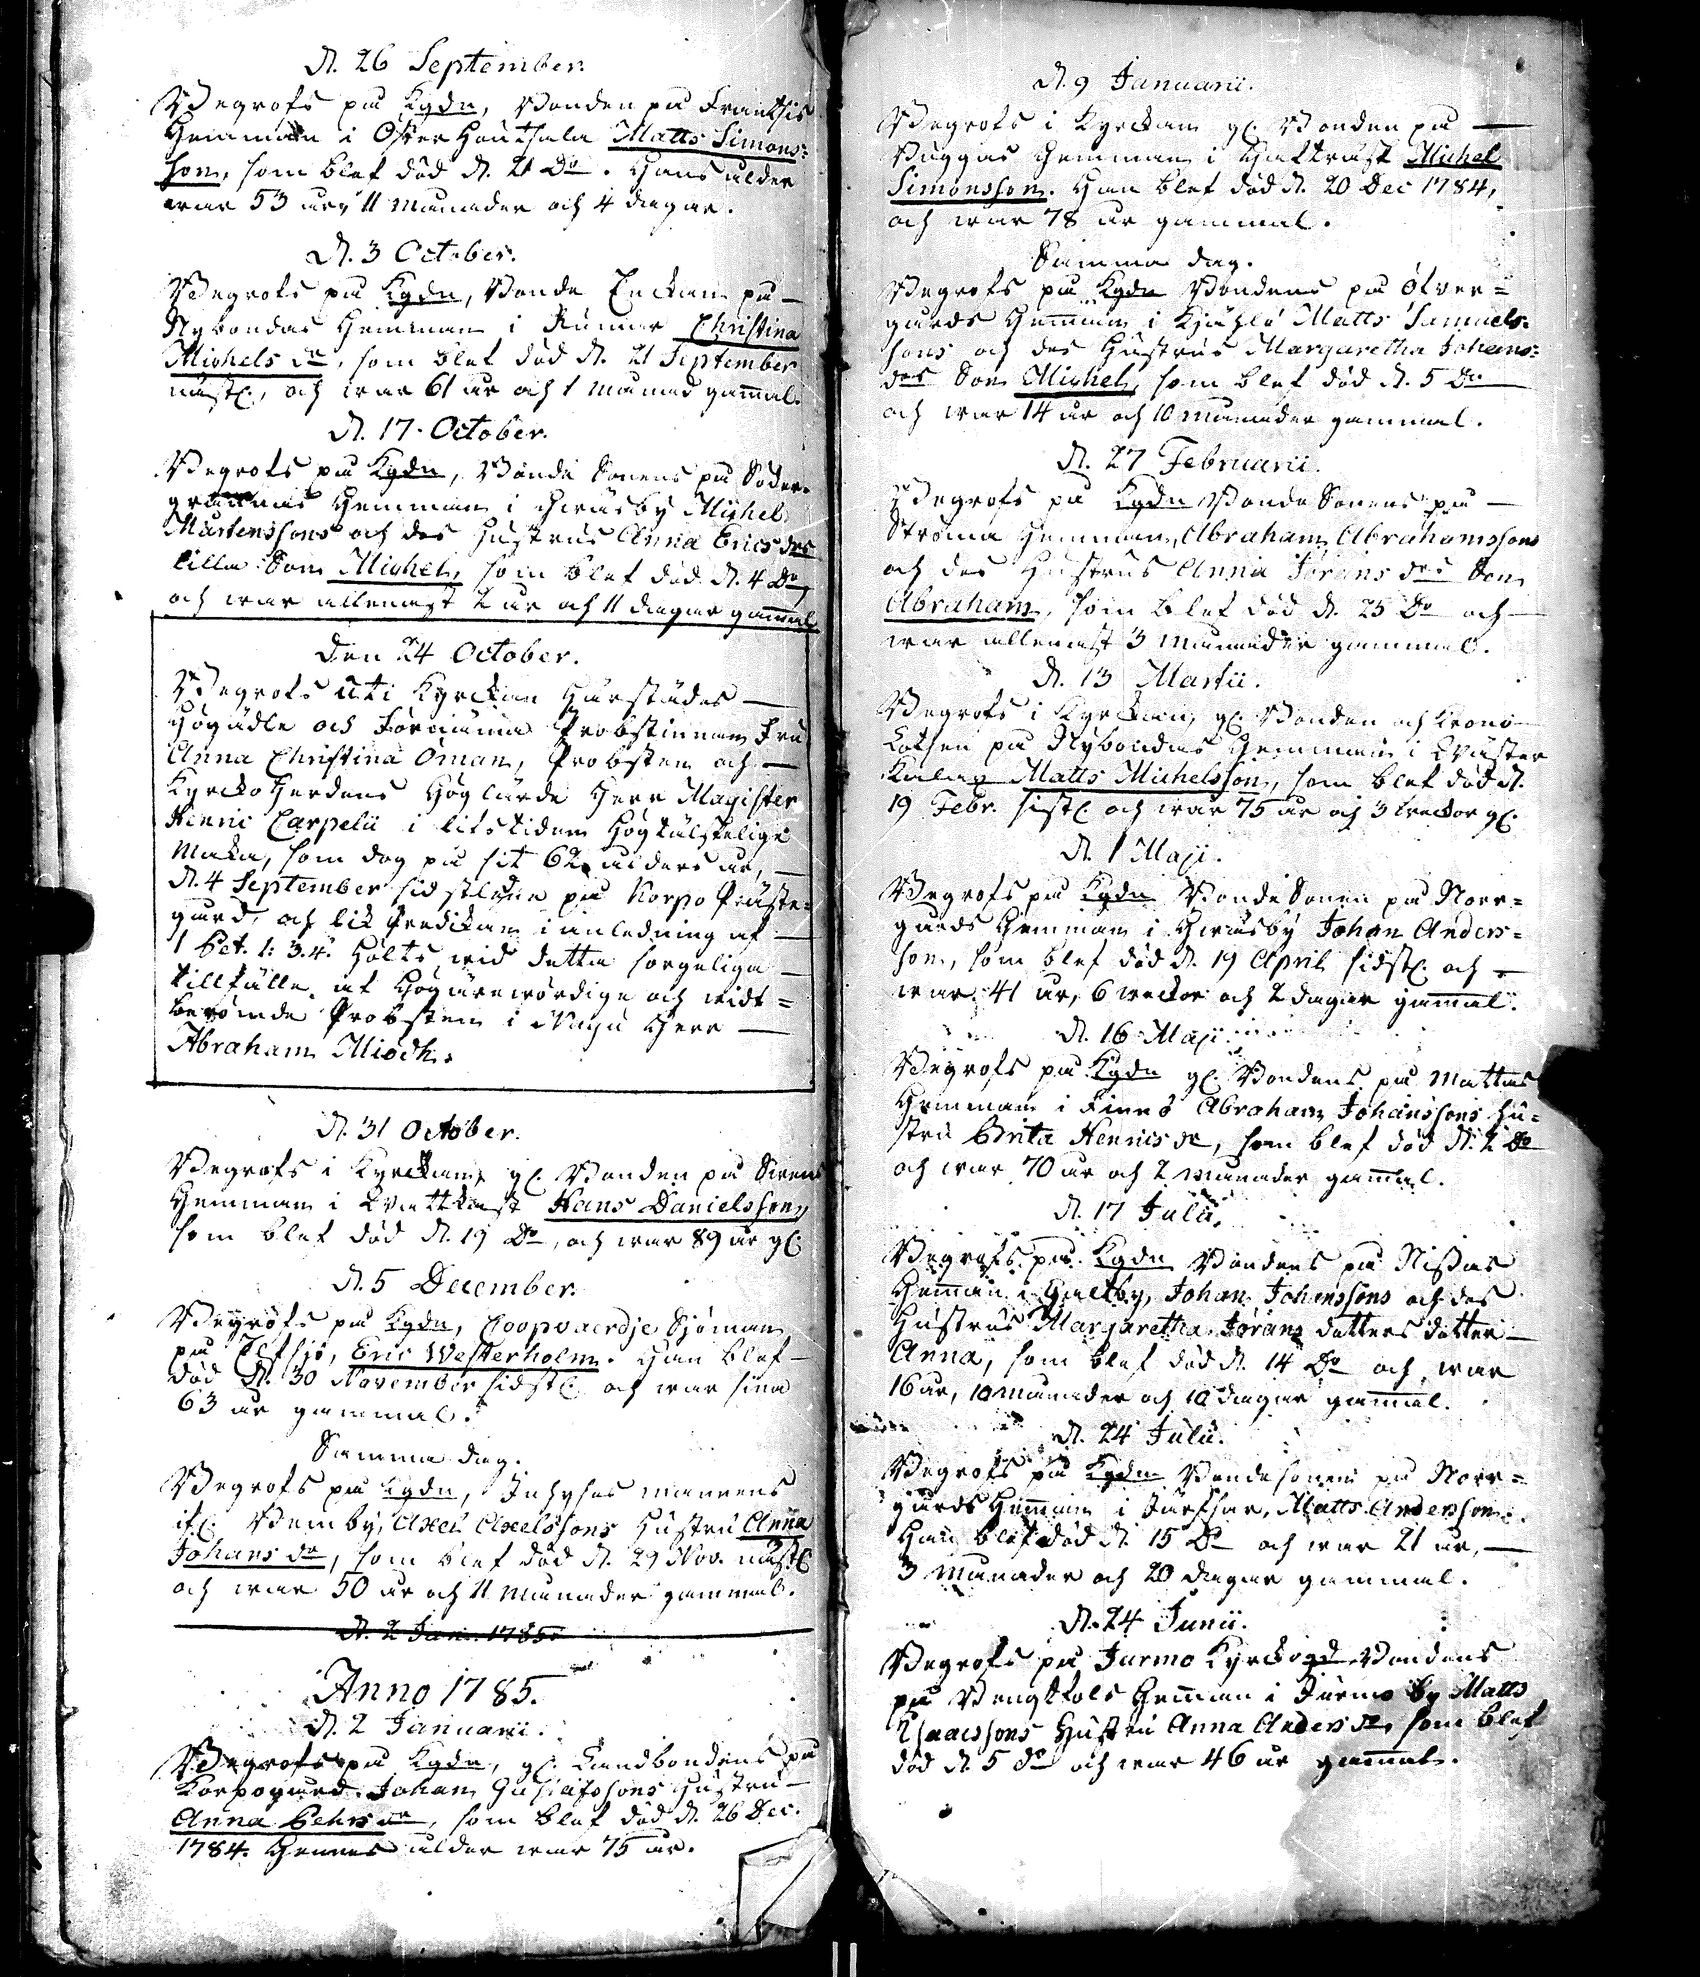 D. 26 September.
Begrofs på Kgdn, Bonden på Frantsis
Hemman i Öster Houtskala Matts Simons=
son, som blef död d. 21 Do. Hans ålder
war 53 år, 11 månader och 4 dagar.
D. 3 October.
Begrofs på Kgdn, Bonde Enckan på —
Nybondas Hemman i Rumar Christina
Michels dr, som blef död d. 21 September
nästl., och war 61 år och 1 månad gam̄al.
D. 17. October.
Begrofs på Kgdn, Bonde Sonens på Söder-
grannas Hemman i Hwäsby Michel
Mårtenssons och des Hustrus Anna Erics drs
lilla Son Michel, som blef död d. 4 Do
och war allenast 2 år och 11 dagar gam̄al
Den 24 October.
Begrofs uti Kyrckan härstädes —
Högädle och Förnäma Probstinnan Fru
Anna Christina Öman, Probsten och —
Kyrcko Herdens Höglärde Herr Magister
Henric Carpelii i lifstiden högtälskelige
Maka, som dog på sit 62 ålders år, —
d. 4 September sidstledne på Korpo Präste=
gård, och lik Predikan i anledning af —
1 Pet. 1: 3.4. hölts wid detta sorgeliga —
tillfälle af Högärewördige och widt=
berömde Probsten i Nagu Herr —
Abraham Miödh.
D. 31 October.
Begrofs i Kyrckan, gl. Bonden på Sirens
Hemman i Wattkast Hans Danielsson,
som blef död d. 19 Do, och war 89 år gl.
D. 5 December.
Begrofs på Kgdn, Coopvaerdje Sjöman
på Elfsjö, Eric Westerholm. Han blef —
död d. 30 November sidstl. och war sina
63 år gammal.
Samma dag.
Begrofs på Kgdn, Inhyses mannens
ifl. Wemby, Axel Axelssons Hustru Anna
Johans dr, som blef död d. 29 Nov. nästl
och war 50 år och 11 månader gammal.
D. 2 Jan. 1785.
Anno 1785.
D. 2 Januarii.
Begrofs på Kgdn, gl. Landbondens på
Korpogård Johan Gustafssons Hustru —
Anna Pehrs dr, som blef död d. 26 Dec.
1784. Hennes ålder war 75 år.
D. 9 Januarii.
Begrofs i Kyrckan gl. Bonden på —
Buggas Hemman i Wattkast Michel
Simonsson. Han blef död d. 20 Dec 1784,
och war 78 år gammal.
Samma dag.
Begrofs på Kgdn Bondens på Öfver=
gårds Hemman i Kjählö Matts Samuels-
sons och des Hustrus Margaretha Johans=
drs Son Michel, som blef död d. 5 Do
och war 14 år och 10 månader gammal.
D. 27 Februarii.
Begrofs på Kgdn Bonde Sonens på —
Ströma Hemman, Abraham Abrahamssons
och des Hustrus Anna Jörans drs Son
Abraham, som blef död d. 25 Do och —
war allenast 3 månader gammal.
D. 13 Martii.
Begrofs i Kyrckan, gl. Bonden och Krono
Lotsen på Nybondas Hemman i Wäster
Matts Michelsson, som blef död d.
19 Febr. sistl och war 75 år och 3 weckor gl.
D. 1 Maji.
Begrofs på Kgdn Bonde Sonen på Norr=
gårds Hemman i Hwäsby Johan Anders=
son, som blef död d. 19 April sidstl. och —
war 41 år, 6 weckor och 2 dagar gam̄al.
D. 16 Maji.
Begrofs på Kgdn gl. Bondens på Mattas
Hemman i Finnö Abraham Johanssons Hu=
stru Brita Henrics dr, som blef död d. 2 Do
och war 70 år och 2 månader gam̄al.
D. 17 Julii.
Begrofs på Kgdn Bondens på Nissas
Hem̄an i Galtby, Johan Johanssons och des
Hustrus Margaretha Jörans dotters dotter —
Anna, som blef död d. 14 Do och war
16 år, 10 månader och 10 dagar gam̄al.
D. 24 Julii.
Begrofs på Kgdn Bonde sonen på Norr=
gårds Hem̄an i Järfsar, Matts Andersson.
Han blef död d. 15 Do och war 21 år, —
3 månader och 20 dagar gammal.
D. 24 Junii.
Begrofs på Jurmo Kyrckogd Bondens
på Bengtsols Hem̄an i Jurmo by Matts
Isaacssons Hustru Anna Anders dr, som blef
död d. 5 do och war 46 år gam̄al.